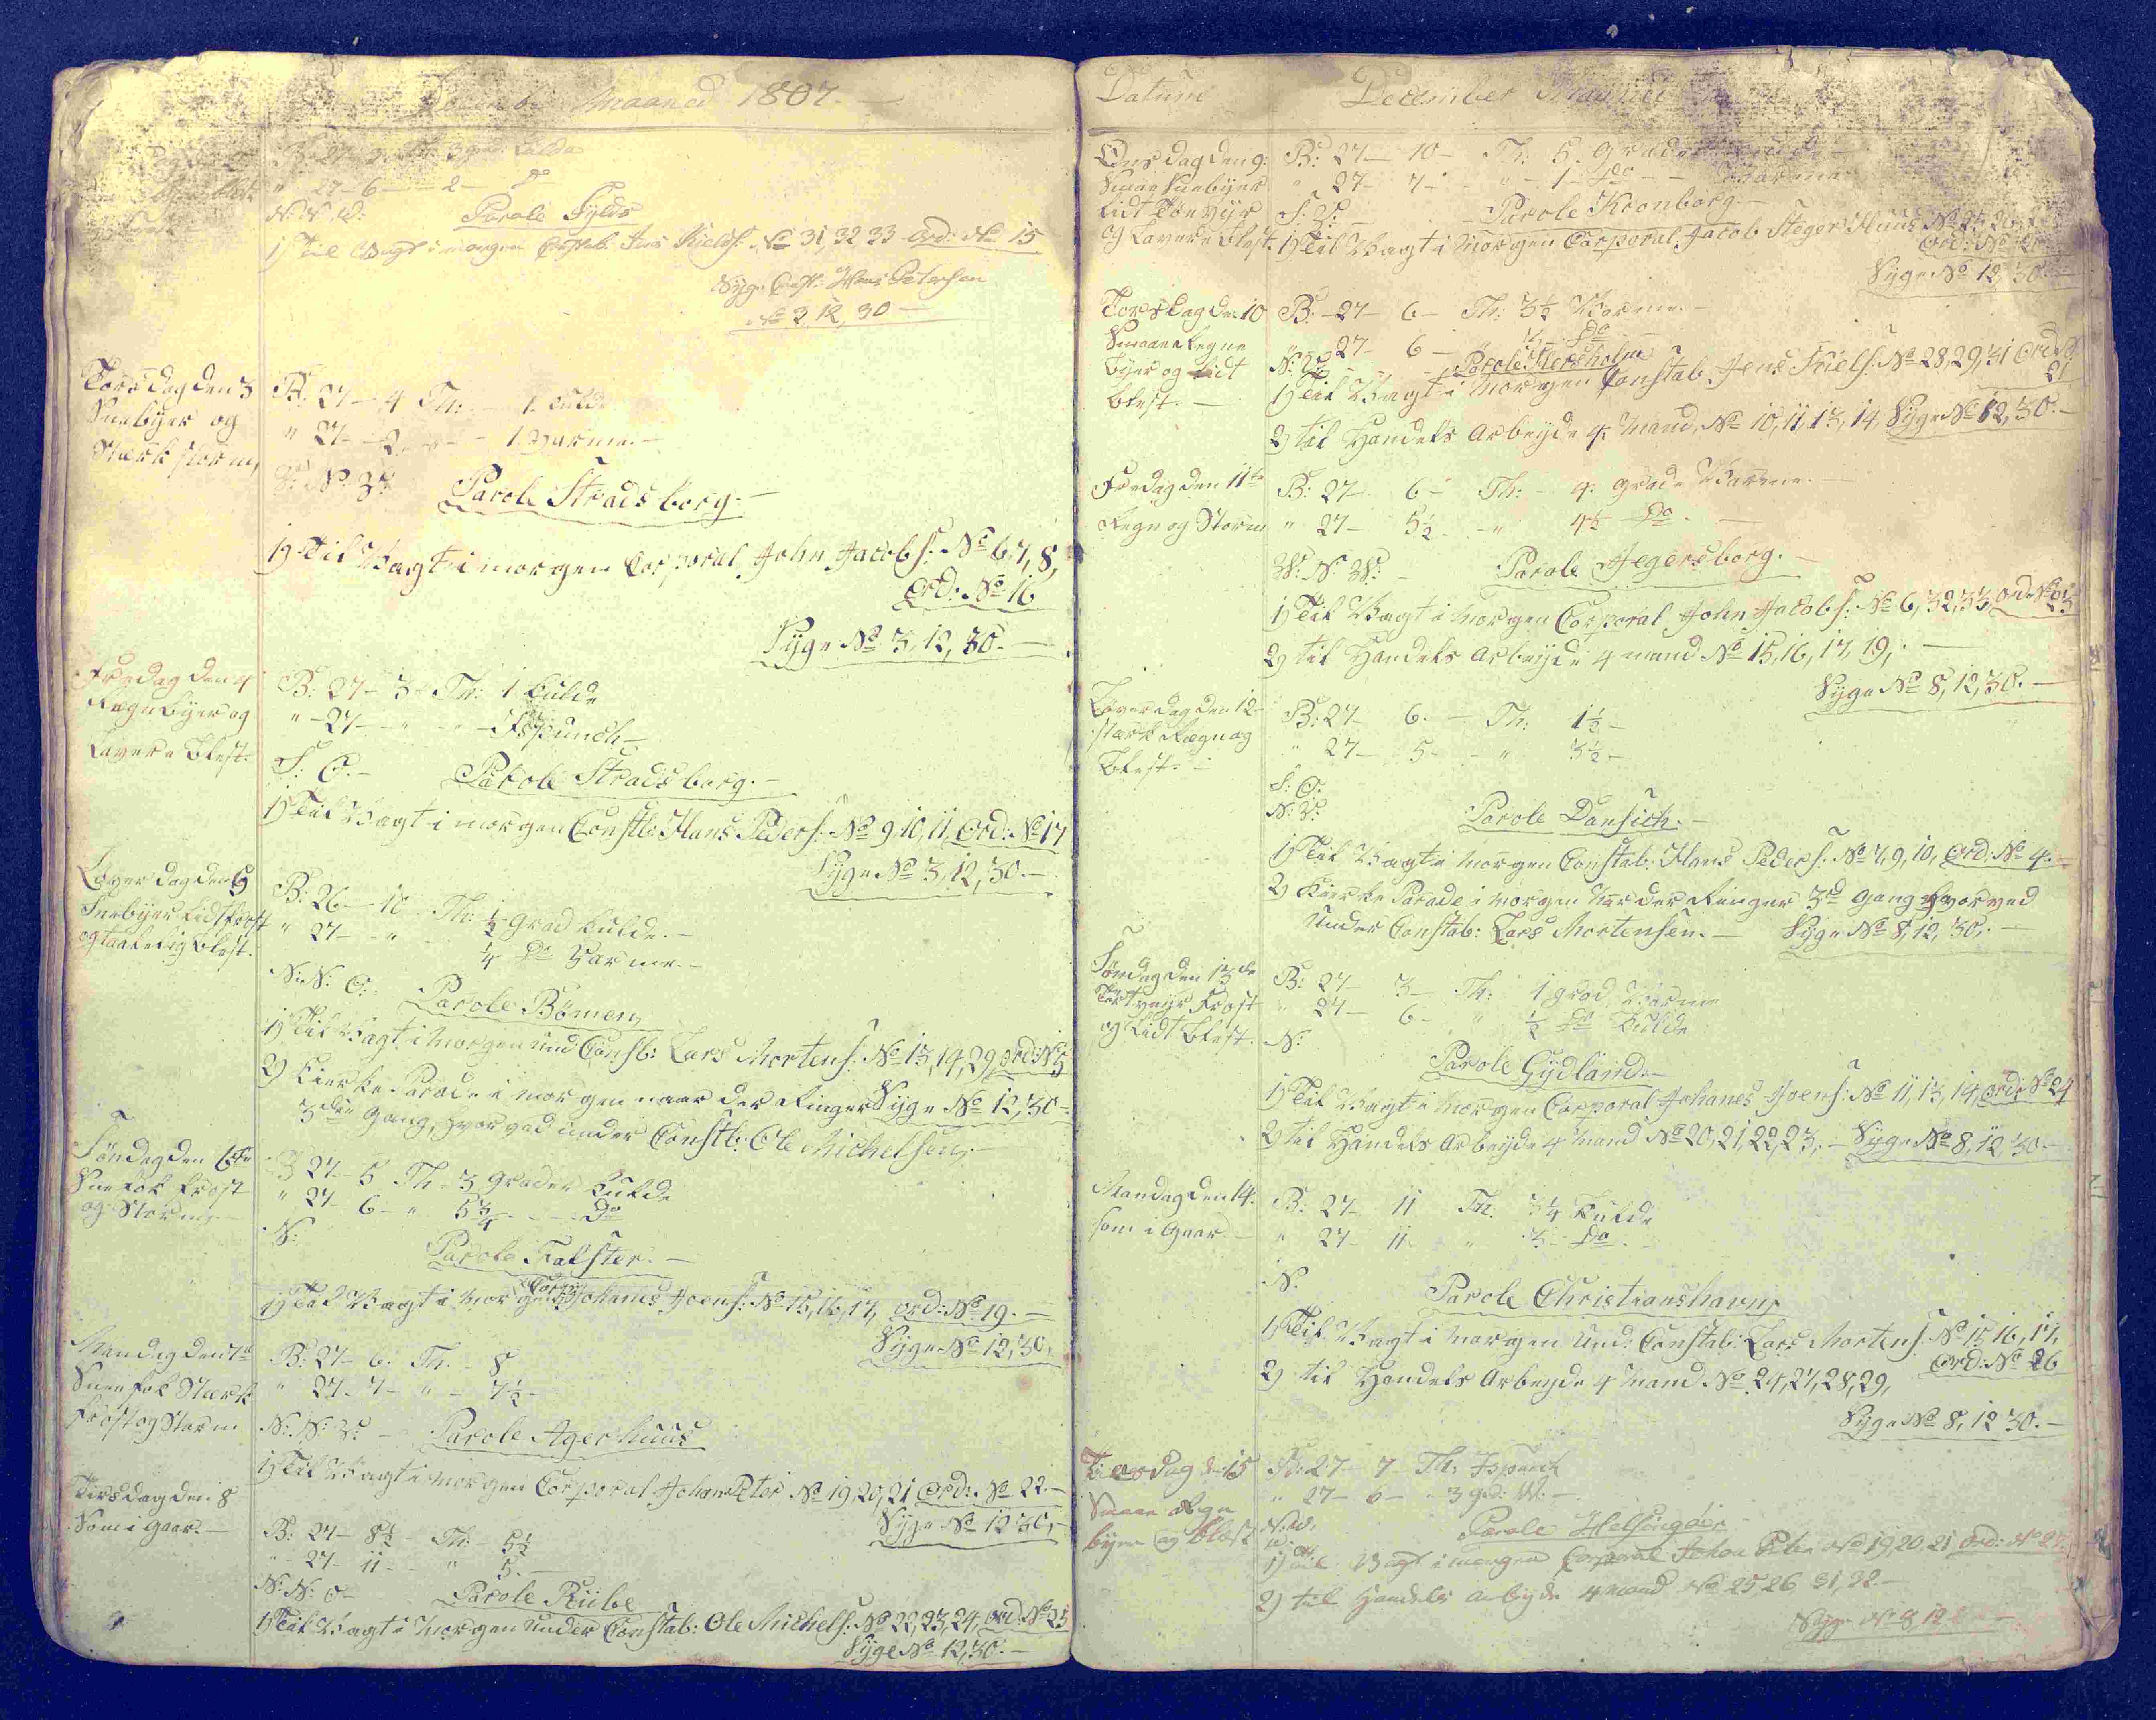 December Maaned 1807.
B: 27 - 2 Th: 3 gr: Kulde
" 27 - 6 - 2 - Do
N: N: O: Parole Fyld
1) Til Vagt i morgen Constab: Jens Kiels: No 31, 32 33 Ord: No 15
Syge Const: Hans Petersen
No 3, 12, 30 -
Torsdag den 3
Sneebyer og
Stærk storm,
B: 27 - 4 Th: - 1 Kulde
" 27 - 2 - " - 1 Varme. -
Parole Stradsborg. -
1) Til Vagt i morgen Corporal John Jacobs: No 6, 7, 8,
Ord: No 16
Syge No 3, 12, 30. -
Fredag den 4
Regnbyer og
Lavere Blest.
B: 27 - 3 - Th: 1 Kulde
" - 27 - " - - Ispunch -
S: O. - Parole Stradsborg. -
1) Til Vagt i morgen Constb: Hans Peders: No 9, 10, 11, Ord: No 17
Syge No 3, 12, 30. -
Løverdag den 5
Sneebyer Lidt frost
og taalelig Blest.
B: 26 - 10 - Th: 1/2 grad Kulde. -
" 27 - " - 1/4 Do Varme. -
N: N: O: Parole Bømen,
1) Til Vagt i morgen und Constb: Lars Mortens: No 13, 14, 29, ord: No 5
2) Kierke Parade i morgen naar der Ringer Syge No 12, 30 -
3die Gang, hvorved under Constb: Ole Michelsen, -
Søndag den 6te
Sneefok frost
og Storm. -
B 27 - 5 Th - 3 grader Kulde
" 27 - 6 - " 5 3/4 - - Do
N: Parole Falster. -
1) Til Vagt i morgen Corpor: Johanes Joens: No 15, 16, 17, ord: No 19. -
Syge No 12, 30,
Mandag den 7de
Sneefok Stærk
frost og Storm
B: 27 - 6. Th. - 8
" 27 - 7 - " - 7 1/2 -
N: N: V: - Parole Agerhuus
1) Til Vagt i morgen Corporal Johan Peter No 19, 20, 21 Ord: No 22. -
Syge No 12 30, -
Tirsdag den 8
Som i Gaar. -
B: 27 - 8 1/2 - Th: - 5 1/2
" - 27 - 11 - - " 5. -
N: N: O - Parole Riibe
1) Til Vagt i morgen under Constab: Ole Michels: No 22, 23, 24, Ord: No 25
Syge No 12, 30. -
Datum December Maaned
Onsdag den 9:
Smaae Sneebyer
Lidt Tøe Vyr
og Lavere Blest.
B: 27 - 10 - Th: 5. grader Kulde -
" 27 - 7 - " - 1 - Do - - Varme
S: V: - Parole Kronborg. -
1) Til Vagt i morgen Corporal Jacob Steger Huus No 25, 26,
Ord: No
Syge No 12, 30.
Torsdag de: 10
Smaae Regne
byer og Lidt
Blest. -
B: - 27 - 6 - Th: 3 1/2 Varme. -
" 27 - 6 - " 1/2 - Do -
N: V: Parole Hersholm
1) Til Vagt i morgen Constab Jens Kiels: No 28, 29, 31 Ord No
21
2) til Handels Arbeyde 4 Mand, No 10, 11, 13, 14, Syge No 12, 30. -
Fredag den 11te
Regn og Storm
B: 27 - 6 - Th: - 4. grader Varme. -
" 27 - 5 1/2 - " 4 1/2 Do. -
V: N: V: - Parole Jegersborg. -
1) Til Vagt i morgen Corporal John Jacobs: No 6, 32, 33, Ord: No 23
2) til Handels Arbeyde 4 mand No 15, 16, 17, 19, -
Syge No 8, 12, 30. -
Løverdag den 12
stærk Regn og
Blest. -
B: 27 - 6. - Th: 1 1/2 -
" 27 - 5 - - " 3 1/2 -
S: O:
N: V: Parole Dansich. -
1) Til Vagt i morgen Constab: Hans Peders: No 7, 9, 10, Ord: No 4. -
2) Kierke Parade i morgen naar der Ringer 3d Gang hvorved
under Constab: Lars Mortensen. - Syge No 8, 12, 30, -
Søndag den 13de
Tørt veyr Frost
og Lidt Blest.
B: 27 - 3 - Th: 1 grad Varme
" 27 - 6 - " 1/2 Do Kulde
N:
Parole Gydland. -
1) Til Vagt i morgen Corporal Johanes Joens: No 11, 13, 14, ord: No 24
2) til Handels Arbeyde 4 Mand No 20, 21, 22, 23, - Syge No 8, 12, 30 -
Mandag den 14.
som i Gaar. -
B: 27 - 11 Th: 3 1/4 Kulde
" 27 - 11 " 3 - Do. -
N. Parole Christianshavn,
1) Til Vagt i morgen und: Constab: Lars Mortens: No 15, 16, 17,
Ord: No 26
2) til Handels Arbeyde 4 Mand No 24, 27, 28, 29,
Syge No 8, 12 30. -
Tiersdag d: 15
Smaae Regn
byer og blæst
B: 27 - 7 - Th: Ispunch
" 27 - 6 - " 3 gr: V: -
Parole Helsingøer
1) Til Vagt i morgen Corporal Johan Peter No 19, 20, 21 Ord: No 27
2) til Handels arbeyde 4 mand No 25 26 31, 32. -
Syge No 8, 12